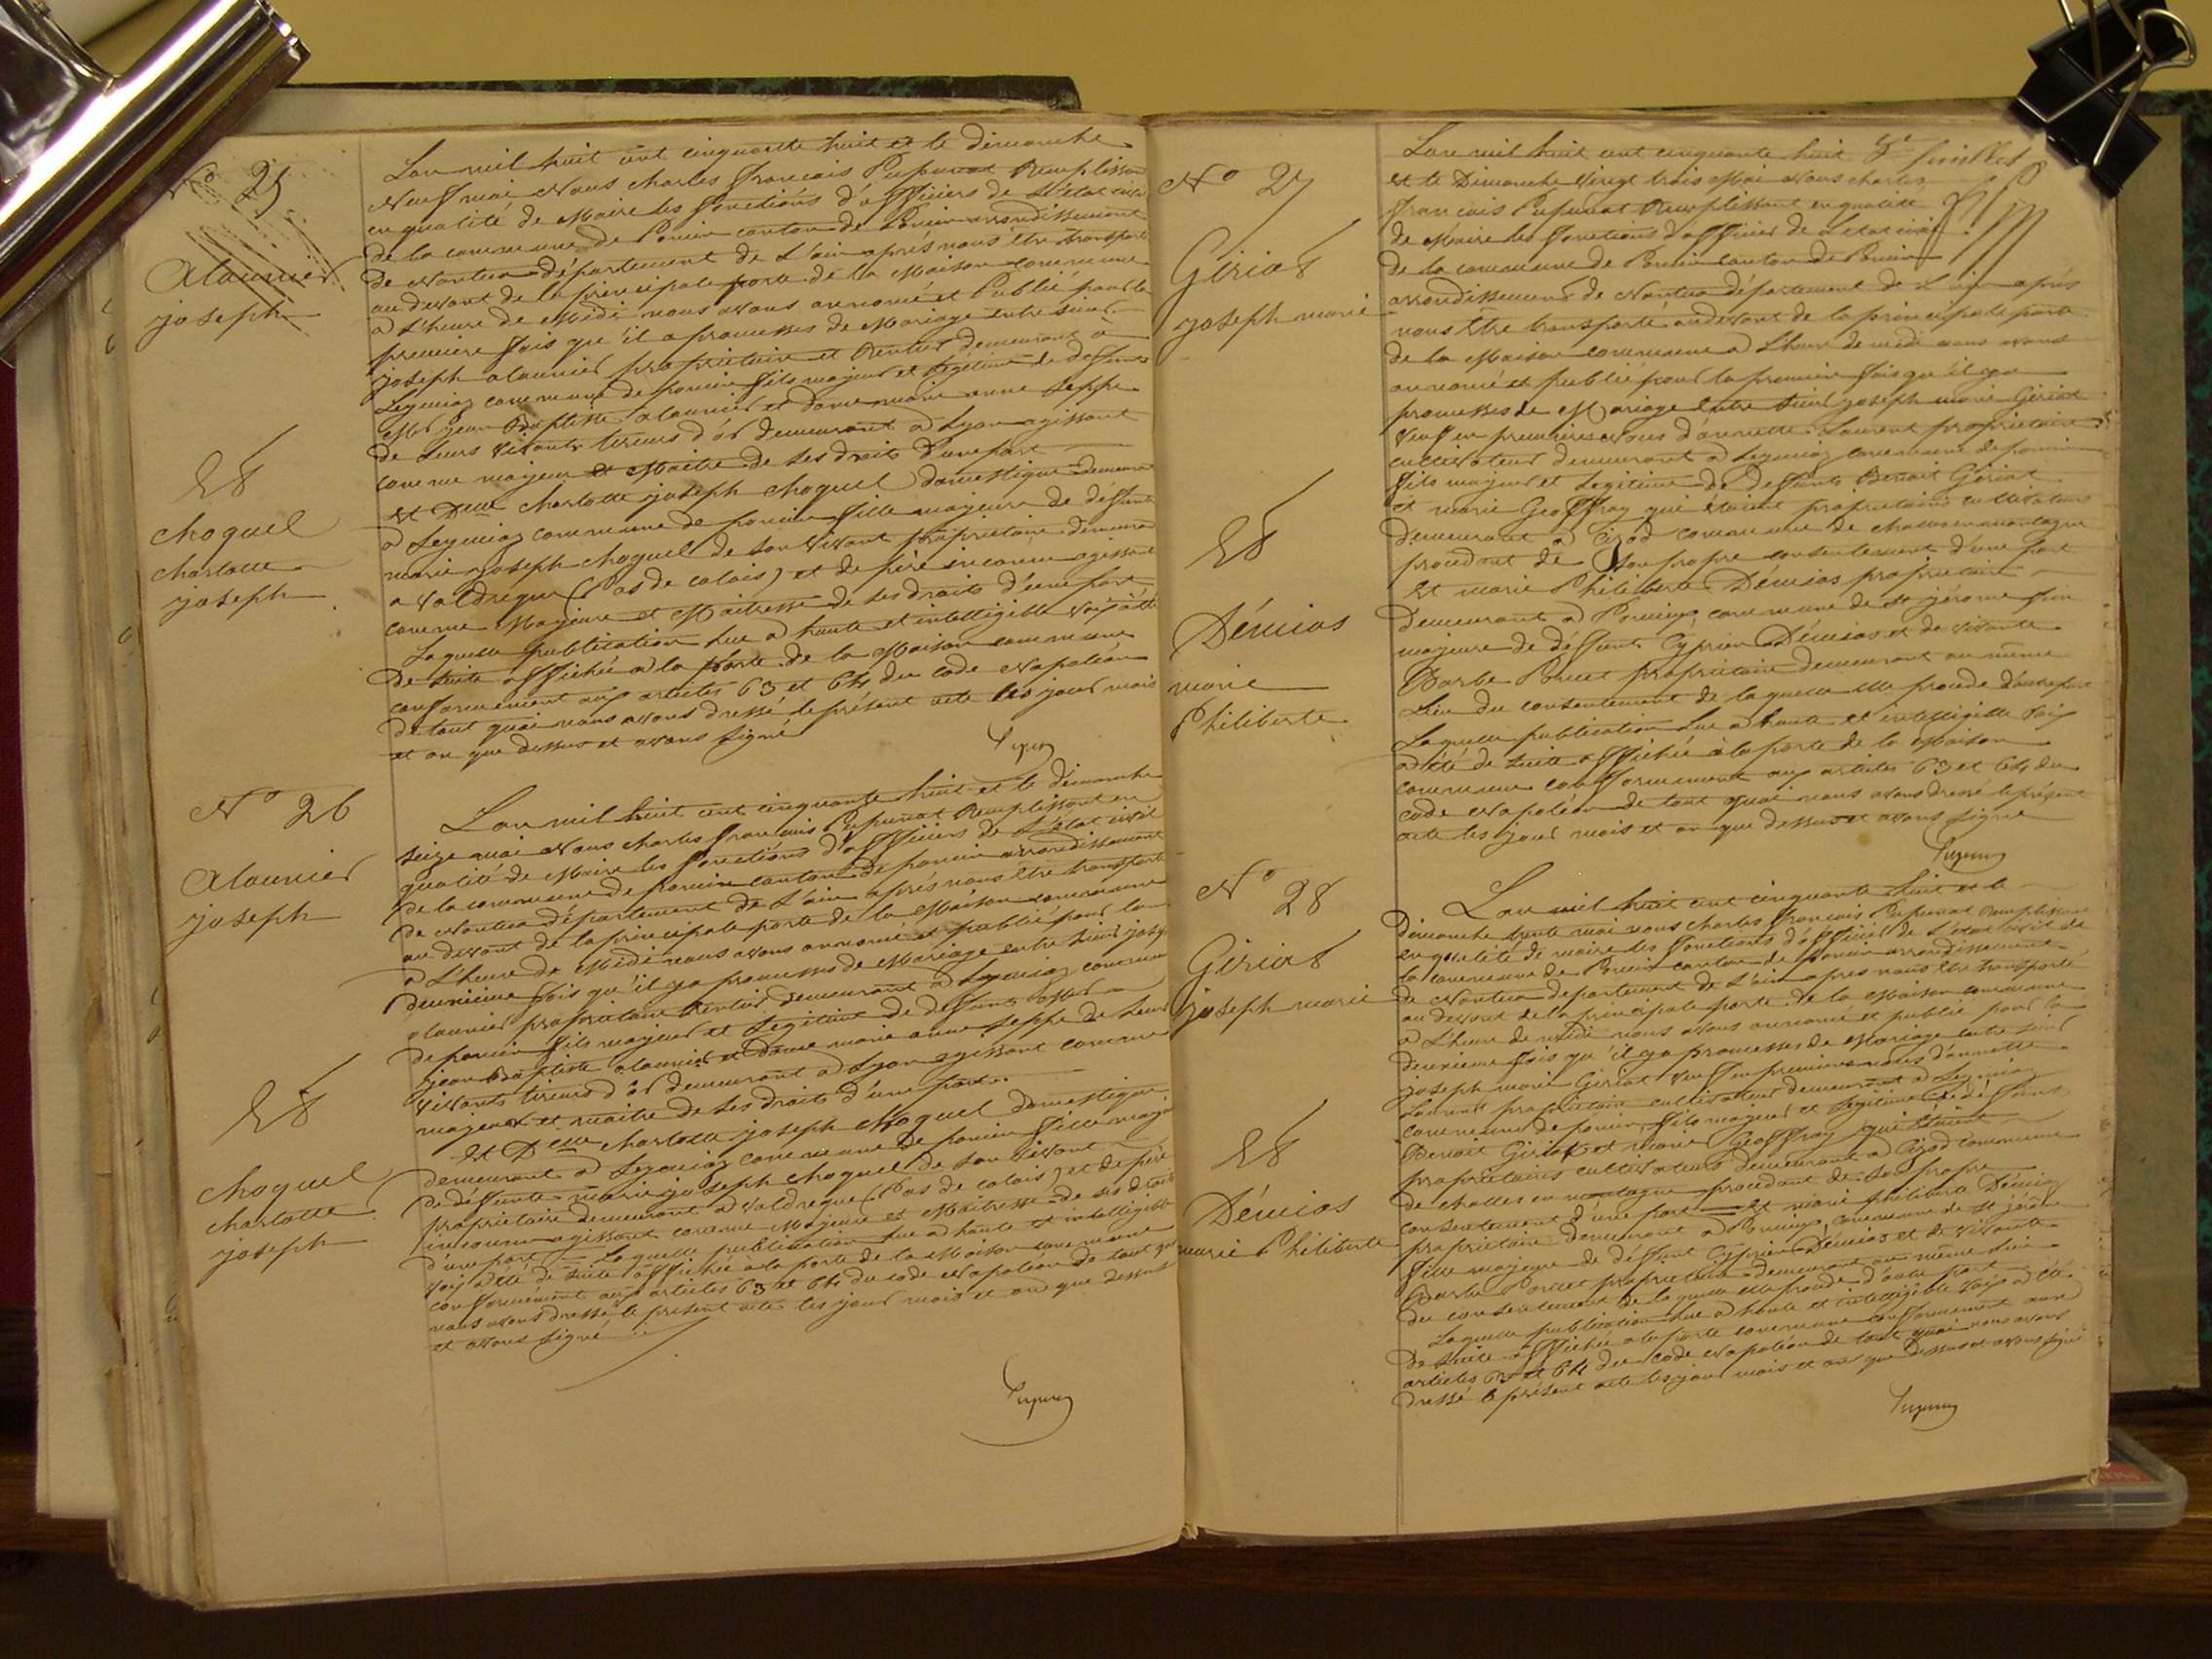 No 25
alaunier
joseph
Et
choquel
charlotte
joseph
L'an mil huit cent cinquante huit et le dimanche
Neuf mai Nous charles francois Pupunat Remplissant
en qualité de Maire les fonctions d'officiers de L'état civil
de la commune de Poncin canton de Poncin arrondissement
de Nantua département de L'ain après nous être transporté
au devant de la principale porte de la Maison commune
a L'heure de Midi nous avons annoncé et Publié pour la
première fois qu'il a promesses de Mariage entre sieur
joseph alaunier propriétaire et Rentier demeurant à
Leymiaz commune de poncin fils majeur et Légitime de defunts
Mr jean Baptiste alaunier et dame marie anne Seppe
de Leurs vivants tireurs d'or demeurant a Lyon agissant
comme majeur et Maitre de ses droits D'une part
et Delle charlotte joseph choquel domestique demeurant
a Leymiaz commune de poncin fille majeure de défunte
marie joseph choquel de son vivant propriétaire demeurant
a valdregue (Pas de calais) et de père inconnu agissant
comme Majeure et Maitresse de ses droits d'une part
Laquelle publication Lue a haute et intelligible voix a été
De suite affichée a la porte de la Maison commune
conformément aux articles 63 et 64 du code Napoléon
De tout quoi nous avons dressé le présent acte les jour mois
et an que dessus et avons signé
No 26
alaunier
joseph
Et
choquel
charlotte
joseph
L'an mil huit cent cinquante huit et le dimanche
seize mai Nous charles francois Pupunat Remplissant en
qualité de Maire les fonctions d'officiers de L'état civil
de la commune de poncin canton de poncin arrondissement
de Nantua département de L'ain après nous être transporté
au devant de la principale porte de la Maison commune
a L'heure de Midi nous avons annoncé et publié pour la
deuxième fois qu'il ya promesses de Mariage entre sieur joseph
alaunier propriétaire Rentier demeurant a Leymiaz commune
de poncin fils majeur et Légitime de défunts Mr
jean Baptiste alaunier et dame marie anne Seppe de Leurs
vivants tireurs d'or demeurant a Lyon agissant comme
majeur et maitre de ses droits d'une part
et Delle charlotte joseph choquel domestique
demeurant a Leymiaz commune de poncin fille majeure
de défunte marie joseph choquel de son vivant
propriétaire demeurant a valdregue (Pas de calais) et de père
inconnu agissant comme Majeure et Maitresse de ses droits
d'une part Laquelle publication Lue a haute et intelligible
voix a été de suite affichée a la porte de la Maison commune
conformément aux articles 63 et 64 du code Napoléon de tout quoi
nous avons dressé le présent acte les jour mois et an que dessus
et avons signé
No 27
Giriat
joseph marie
Et
Démias
marie
Philiberte
L'an mil huit cent cinquante huit
et le Dimanche vingt trois Mai Nous charles
francois Pupunat Remplissant en qualité
de Maire les fonctions d'officier de L'état civil
de la commune de Poncin canton de Poncin
arrondissement de Nantua département de L'ain après
nous être transporté au devant de la principale porte
de la Maison commune a L'heure de midi nous avons
annoncé et publié pour la première fois qu'il ya
promesses de Mariage entre sieur joseph marie Giriat
veuf en premières noces d'annette Laurent propriétaire
cultivateur demeurant a Leymiaz commune de poncin
fils majeur et Légitime de Deffunts Benoit Giriat
et marie Geoffray qui étaient propriétaires cultivateurs
demeurant a Cizod commune de challes en montagne
procédant de son propre consentement d'une part
Et marie Philiberte Démias propriétaire
demeurant a Poncieux commune de st jérome fille
majeure de défunt Cyprien Démias et de vivante
Barbe Poncet propriétaire demeurant au même
Lieu du consentement de laquelle elle procède d'autre part
Laquelle publication Lue a haute et intelligible voix
a été de suite affichée à la porte de la Maison
commune conformément aux articles 63 et 64 du
code Napoléon de tout quoi nous avons dressé le présent
acte les jour mois et an que dessus et avons signé
No 28
Giriat
joseph marie
Et
Démias
marie Philiberte
L'an mil huit cent cinquante huit et le
Dimanche trente mai nous charles francois Pupunat Remplissant
en qualité de maire les fonctions d'officier de L'état civil de
la commune de Poncin canton de Poncin arrondissement
de Nantua département de L'ain après nous être transporté
au devant de la principale porte de la Maison commune
a L'heure de midi nous avons annoncé et publié pour la
deuxième fois qu'il ya promesses de Mariage entre sieur
joseph marie Giriat veuf en premières noces d'annette
Laurent propriétaire cultivateur demeurant a Leymiaz
commune de poncin fils majeur et Légitime de défunts
Benoit Giriat et marie Geoffray qui étaient
propriétaires cultivateurs demeurant a Cizod commune
de challes en montagne procédant de son propre
consentement d'une part Et marie philiberte Démias
propriétaire demeurant a Poncieux commune de st jérome
fille majeure de défunt Cyprien Démias et de vivante
Barbe Poncet propriétaire demeurant au même Lieu
du consentement de laquelle elle procède d'autre part
Laquelle publication Lue a haute et intelligible voix a été
De suite affichée a la porte commune conformément aux
articles 63 et 64 du code Napoléon de tout quoi nous avons
dressé le présent acte les jour mois et an que dessus et avons signé